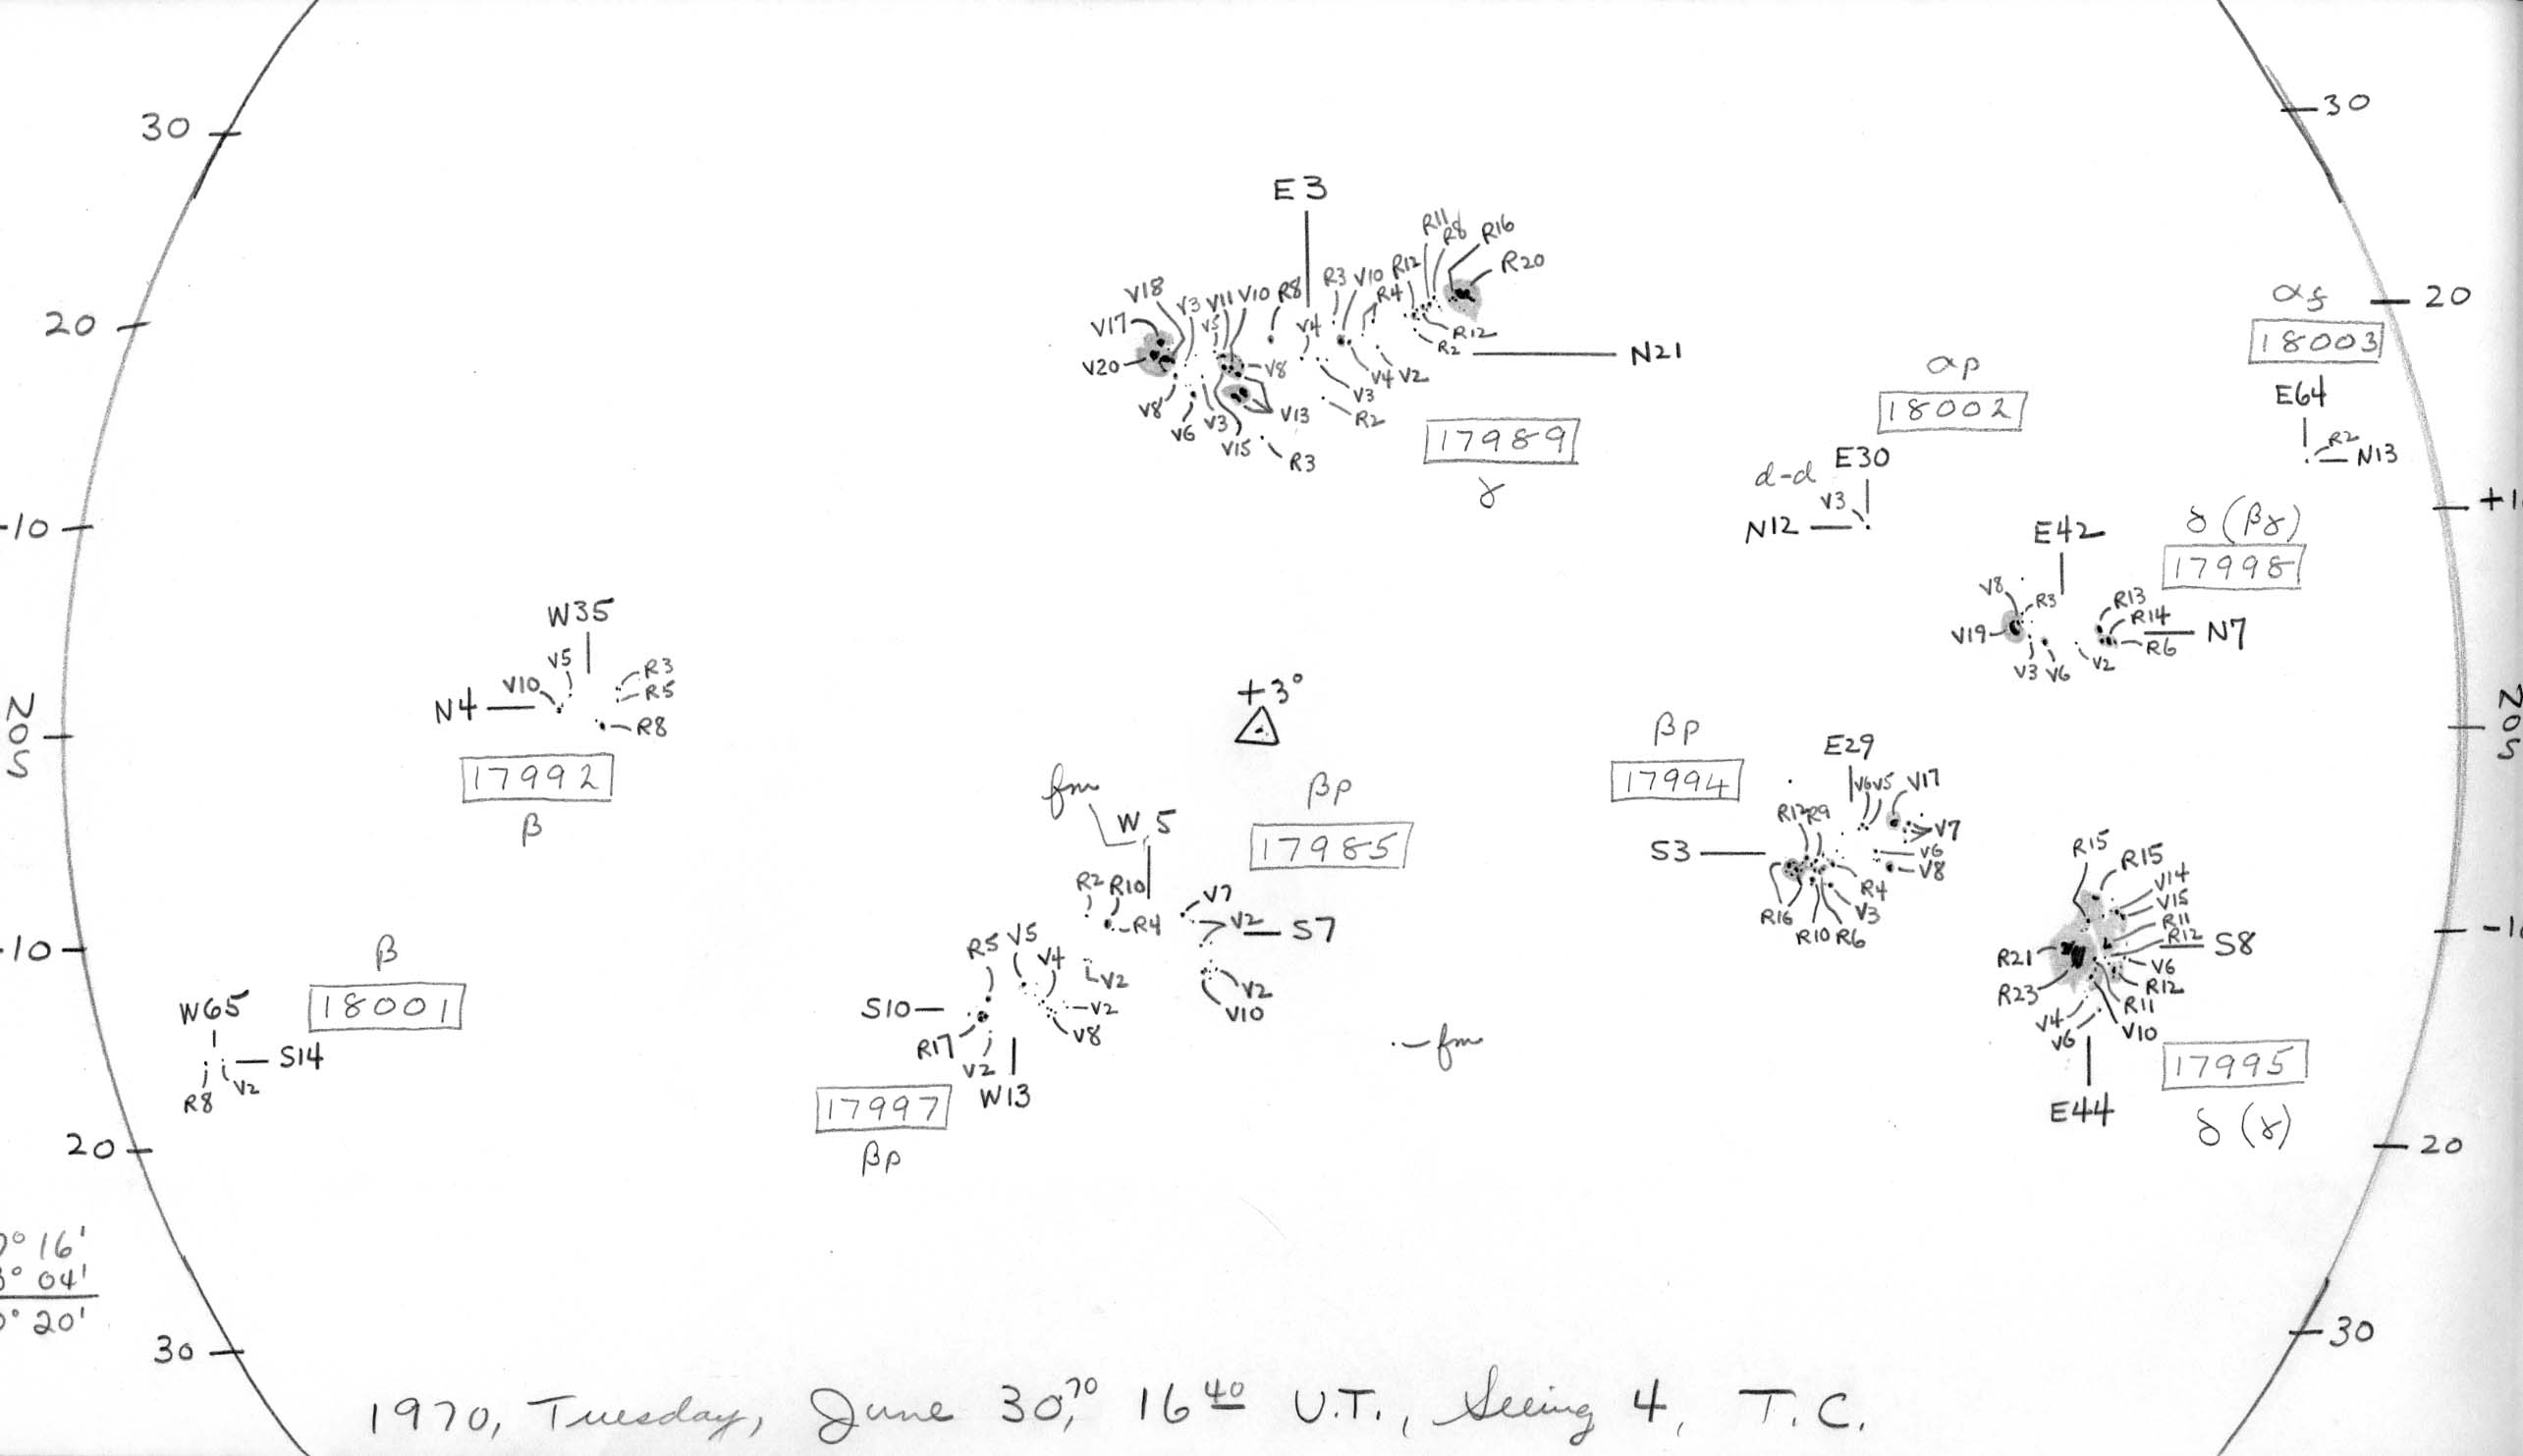 30
30
E3
R11 R8 R16
R12 R20
R3 V10 R4
V18 V3 V11 V10 R8
V17 V5 V4
V20 V8
R12
R2
N21
V4 V2
V3
V8 V6 V3 V15 V13 R2
R3
17989
γ
20
20
αf
18003
E64
R2
N13
αp
18002
d-d E30
V3
N12
-10
+1
δ (βγ)
E42
17998
V8 R3 R13
R14
V19 N7
R6
V3 V6 V2
W35
V5 R3
V10 R5
N4
R8
17992
β
N
O
S
N
O
S
+3°
βp
17994
E29
V6 V5 V17
R12 R9
V7
S3 V6
V8
R4
R16 V3
R10 R6
fm
W 5
βp
17985
R2 R10 V7
R4 V2 S7
R5 V5
V4
V2
S10 V2 V2
V8 V10
R17
V2
W13
fm
17997
βp
R15 R15
V14
V15
R11
R12 S8
R21
V6
R23 R12
R11
V4 V10
V6
17995
E44
δ (γ)
-10
-1
β
18001
W65
S14
V2
R8
20
20
° 16'
° 04'
° 20'
30
30
1970, Tuesday, June 30, 70 16 40 U.T., Seeing 4, T.C.